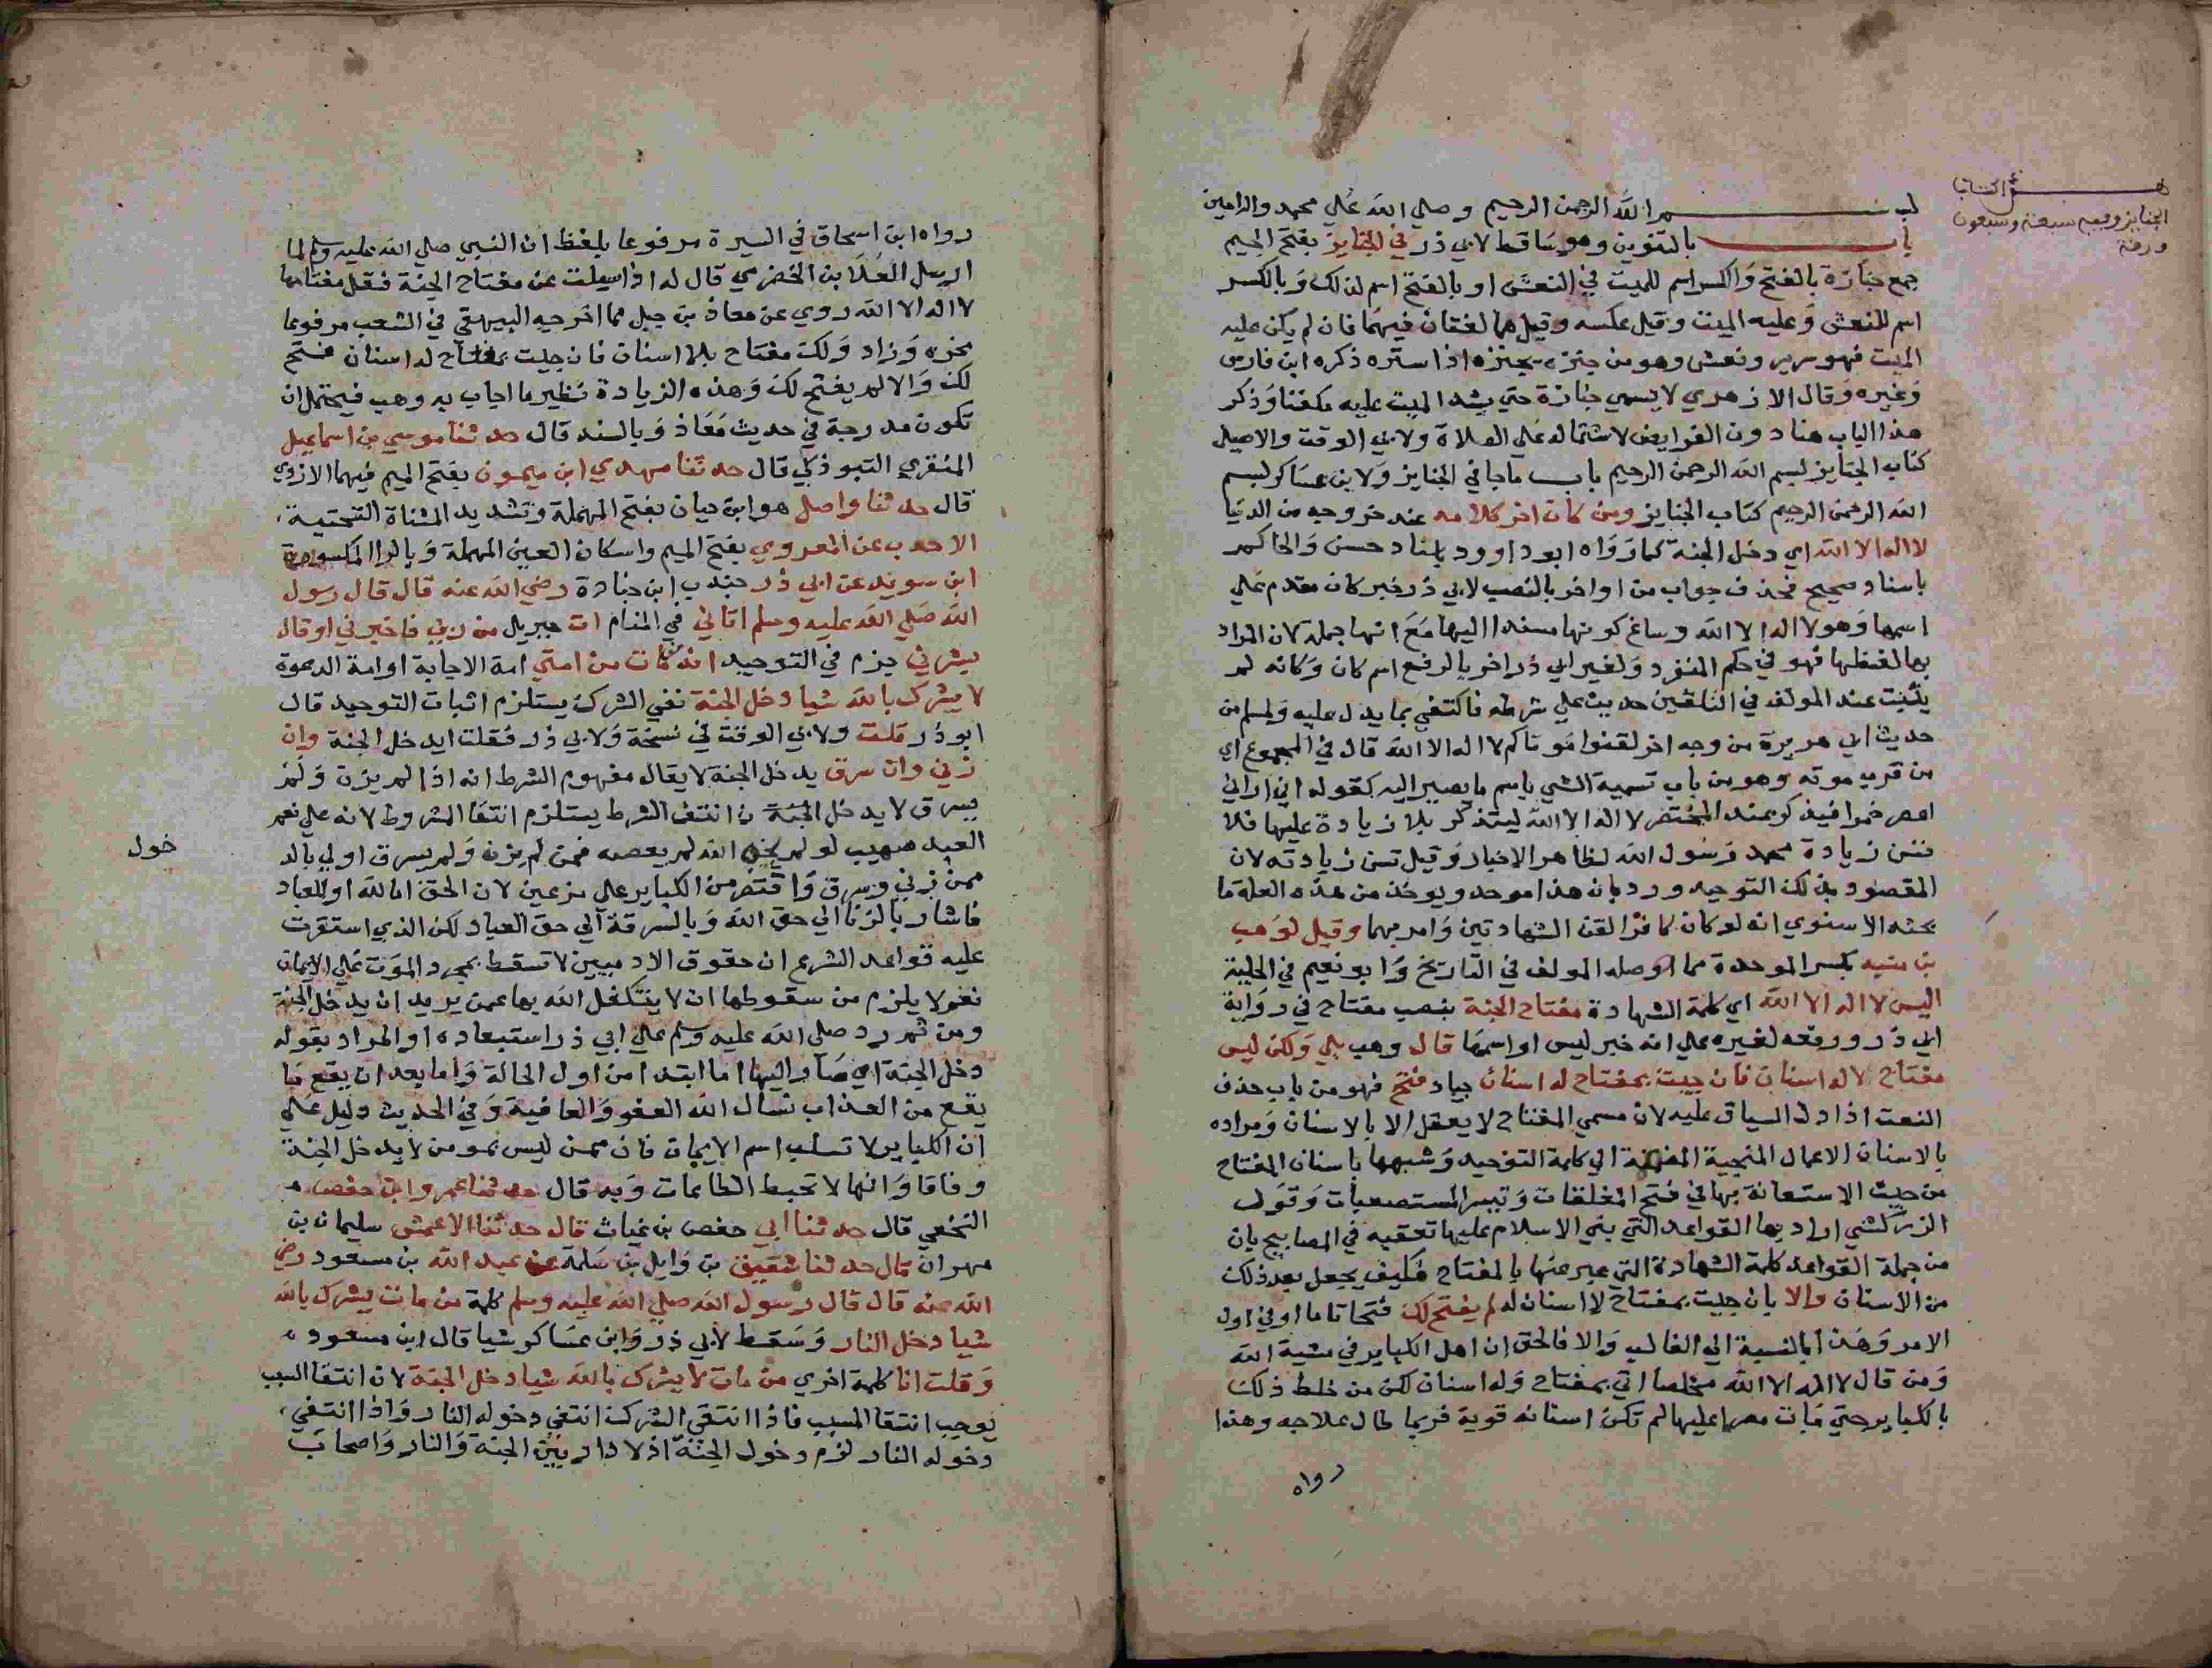 بسم الله الرحمن الرحيم وصلى الله على محمد واله امين
باب بالتنوين وهو ساقط لابي ذر في الجنايز بفتح الجيم
جمع جنازة بالفتح والكسر اسم للميت في النعش او بالفتح اسم لذلك وبالكسر
اسم للنعش وعليه الميت وقيل عكسه وقيل هما لغتان فيهما فان لم يكن عليه
الميت فهو سرير ونعش وهو من جنزه يجنزه اذا ستره ذكره ابن فارس
وغيره وقال الازهري لا يسمي جنازة حتي يشد الميت عليه مكفنا وذكر
هذا الباب هنا دون الفرايض لاشتماله علي الصلاة ولابي الوقت والاصيلي
كتاب الجنايز بسم الله الرحمن الرحيم باب ماجا في الجنايز ولابن عساكر بسم
الله الرحمن الرحيم كتاب الجنايز ومن كان اخر كلامه عند خروجه من الدنيا
لا اله الا الله اي دخل الجنة كما رواه ابو داوود باسناد حسن والحاكم
باسناد صحيح فحذف جواب من واخر بالنصب لابي ذر خبر كان مقدم علي
اسمها وهو لا اله الا الله وساغ كونها مسندا اليها مع انها جملة لان المراد
بها لفظها فهو في حكم المفرد ولغير ابي ذر اخر بالرفع اسم كان وكانه لم
يثبت عند المولف في التلقين حديث علي شرطه فاكتفي بما يدل عليه ولمسلم من
حديث ابي هريرة من وجه اخر لقنوا موتاكم لا اله الا الله قال في المجموع اي
من قرب موته وهو من باب تسمية الشي باسم ما يصير اليه كقوله اني اراني
اعصر خمرا فيذكر عند المحتضر لا اله الا الله ليتذكر بلا زيادة عليها فلا
تسن زيادة محمد رسول الله لظاهر الاخبار وقيل تسن زيادته لان
المقصود بذلك التوحيد ورد بان هذا موحد ويوخذ من هذه العلة ما
بحثه الاسنوي انه لو كان كافرا لقن الشهادتين وامر بهما وقيل لوهب
بن منبه بكسر الموحدة مما اوصله المولف في التاريخ وابو نعيم في الحلية
اليس لا اله الا الله اي كلمة الشهادة مفتاح الجنة بنصب مفتاح في رواية
ابي ذر ورفعه لغيره علي انه خبر ليس او اسمها قال وهب بلي ولكن ليس
مفتاح الا له اسنان فان جيت بمفتاح له اسنان جياد فتح فهو من باب حذف
النعت اذا دل السياق عليه لان مسمي المفتاح لا يعقل الا بالاسنان ومراده
بالاسنان الاعمال المنجية المنضمة الي كلمة التوحيد وشبهها باسنان المفتاح
من حيث الاستعانة بها في فتح المغلقات وتيسر المستصعبات وقول
الزركشي اراد بها القواعد التي بني الاسلام عليها تعقبه في المصابيح بان
من جملة القواعد كلمة الشهادة التي عبر عنها بالمفتاح فكيف يجعل بعد ذلك
من الاسنان والا بان جيت بمفتاح لا اسنان له لم يفتح لك فتحا تاما او في اول
الامر وهذا بالنسبة الي الغالب والا فالحق ان اهل الكباير في مشية الله
ومن قال لا اله الا الله مخلصا اتي بمفتاح وله اسنان لكن من خلط ذلك
بالكباير حتي مات مصرا عليها لم تكن اسنانه قوية فربما طال علاجه وهذا
رواه
الجنايز وفيه سبعة وسبعون
ورقة
رواه ابن اسحاق في السيرة مرفوعا بلفظ ان النبي صلي الله عليه وسلم لما
ارسل العلا بن الحضرمي قال له اذا سيلت عن مفتاح الجنة فقل مفتاحها
لا اله الا الله روي عن معاذ بن جبل مما اخرجه البيهقي في الشعب مرفوعا
نحوه وزاد ولكن مفتاح بلا اسنان فان جيت بمفتاح له اسنان فتح
لك والا لم يفتح لك وهذه الزيادة نظير ما اجاب به وهب فيحتمل ان
تكون مدرجة في حديث معاذ وبالسند قال حدثنا موسي بن اسماعيل
المنقري التبوذكي قال حدثنا مهدي ابن ميمون بفتح الميم فيهما الازدي
قال حدثنا واصل هو ابن حيان بفتح المهملة وتشديد المثناة التحتية
الاحدب عن المعرور بفتح الميم واسكان العين المهملة وبالرا المكسورة
ابن سويد عن ابي ذر جندب ابن جنادة رضي الله عنه قال قال رسول
الله صلي الله عليه وسلم اتاني في المنام ات جبريل من ربي فاخبرني او قال
بشرني جزم في التوحيد انه من مات من امتي امة الاجابة او امة الدعوة
لا يشرك بالله شيا دخل الجنة نفي الشرك يستلزم اثبات التوحيد قال
ابو ذر قلت ولابي الوقت في نسخة ولابي ذر فقلت ايدخل الجنة وان
زني وان سرق يدخل الجنة لا يقال مفهوم الشرط انه اذا لم يزن ولم
يسرق لا يدخل الجنة اذ انتفا الشرط يستلزم انتفا المشروط لانه علي نعم
العبد صهيب لو لم يخف الله لم يعصه فمن لم يزن ولم يسرق اولي بالد
خول
ممن زني وسرق واقتصر من الكباير علي نوعين لان الحق اما لله او للعباد
فاشار بالزنا الي حق الله وبالسرقة الي حق العباد لكن الذي استقرت
عليه قواعد الشرع ان حقوق الادميين لا تسقط بمجرد الموت علي الايمان
نعم لا يلزم من سقوطها ان لا يتكفل الله بها عمن يريد ان يدخل الجنة
ومن ثم رد صلي الله عليه وسلم علي ابي ذر استبعاده او المراد بقوله
دخل الجنة اي صار اليها اما ابتدا من اول الحالة واما بعد ان يقع ما
يقع من العذاب نسال الله العفو والعافية وفي الحديث دليل علي
ان الكباير لا تسلب اسم الايمان فان من ليس بمومن لا يدخل الجنة
وفاقا وانها لا تحبط الطاعات وبه قال حدثنا عمر وابن حفص
النخعي قال حدثنا ابي حفص بن غياث قال حدثنا الاعمش سليمان بن
مهران قال حدثنا شقيق بن وايل بن سلمة عن عبد الله بن مسعود رضي
الله عنه قال قال رسول الله صلي الله عليه وسلم كلمة من مات يشرك بالله
شيا دخل النار وسقط لابي ذر وابن عساكر شيا قال ابن مسعود
وقلت انا كلمة اخري من مات لا يشرك بالله شيا دخل الجنة لان انتفا السبب
يوجب انتفا المسبب فاذا انتفي الشرك انتفي دخوله النار واذا انتفي
دخوله النار لزم دخول الجنة اذ لا دار بين الجنة والنار واصحاب